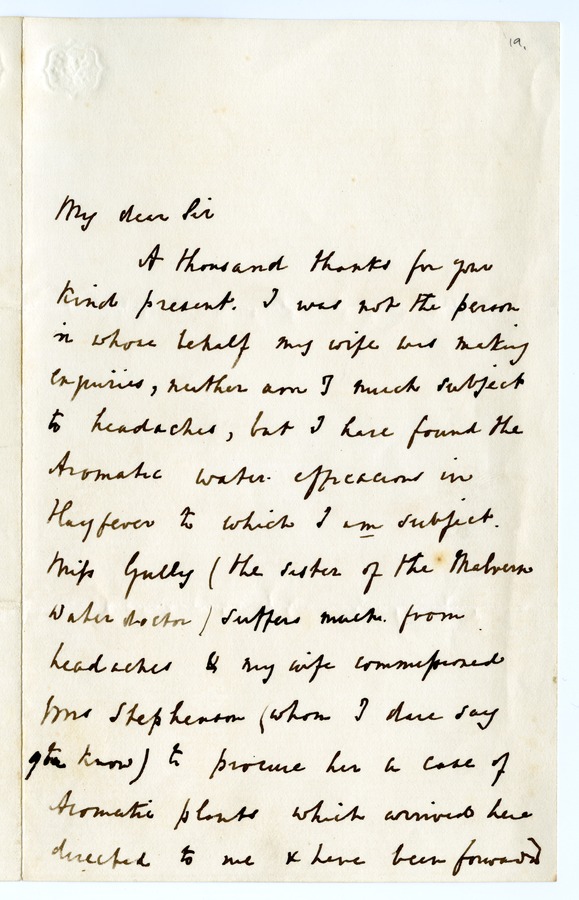 19.
My dear Sir
A thousand thanks for your
kind present. I was not the person
in whose behalf my wife was making
enquiries, neither am I much subject
to headaches, but I have found the
Aromatic water efficacious in
Hayfever to which I am subject.
Miss Gully (the sister of the Malvern
Water doctor) suffers much from
headaches & my wife commissioned
Mrs Stephenson (whom I dare say
you know) to procure her a case of
Aromatic plants which arrived here
directed to me & have been forwarded